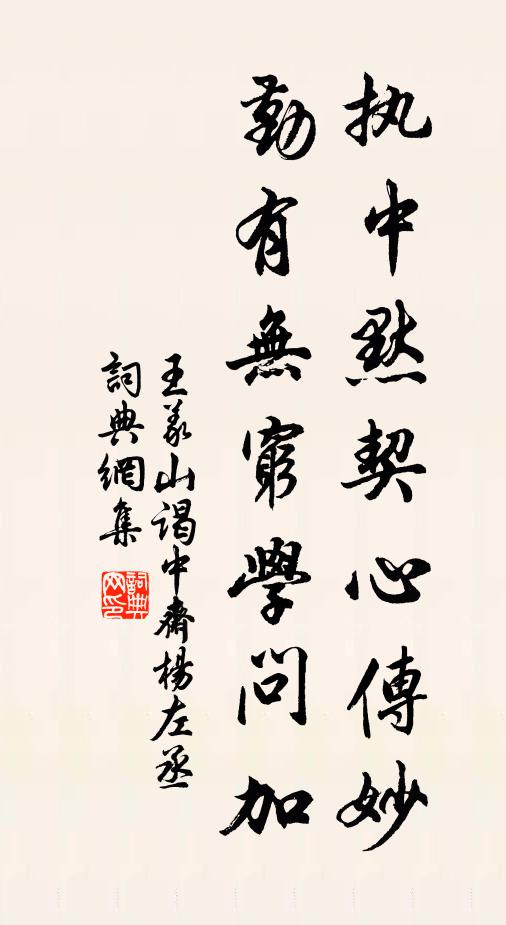 执中默契心傳妙
勤有無窮學問加
王義山謁中齋楊左丞
詞典網集
詞典网印